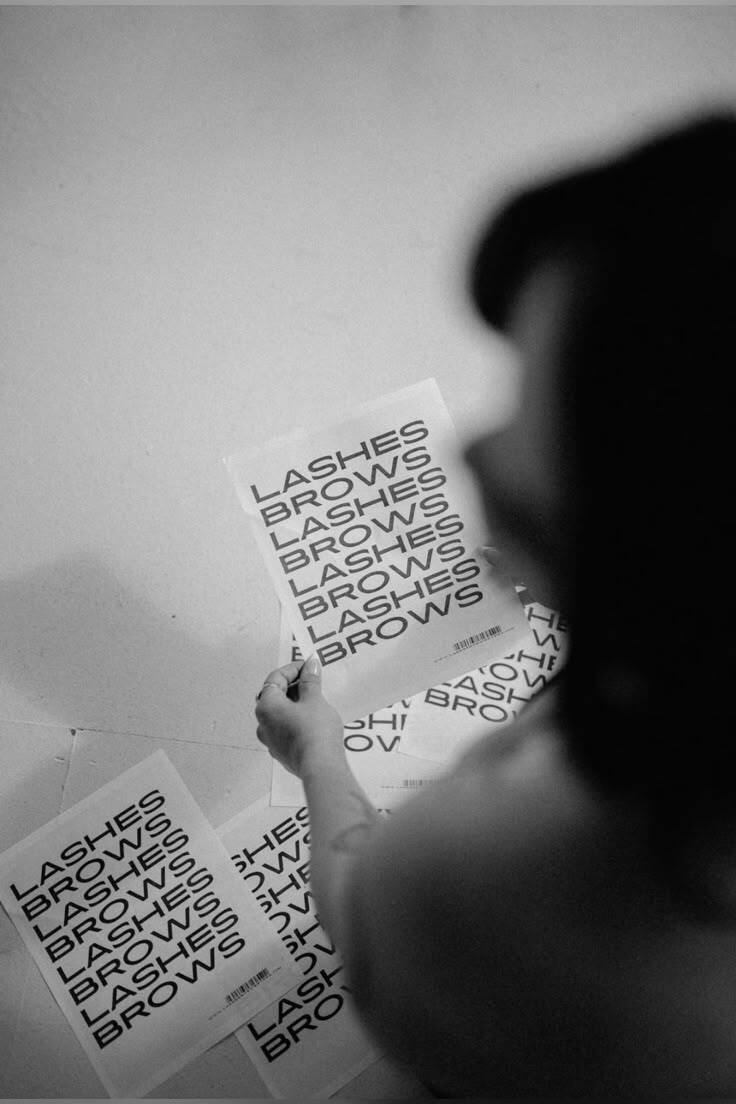 LASHES
BROWS
LASHES
BROWS
LASHES
BROWS
LASHES
BROWS
LASHES
BROWS
LASHES
BROWS
LASHES
BROWS
LASHES
BROWS
LASH
BRO